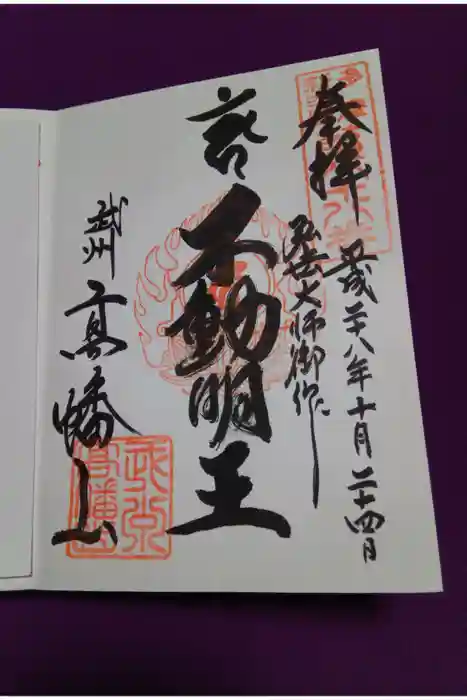 奉拝
平成二十八年十月二十四日
弘法大師御作
不動明王
武州
高幡山